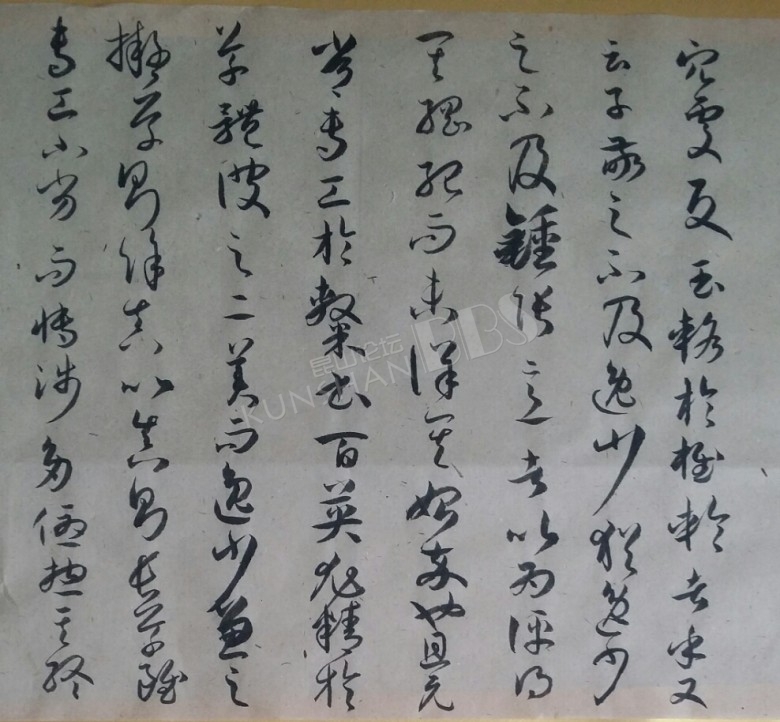 穴處反玉輅於椎輪者乎又
云子敬之不及逸少猶逸少
之不及鍾張意者以為評得
其綱紀而未詳其始卒也且元
常專工於隸書百英尤精於
草體彼之二美而逸少兼之
擬草則餘真比真則長草雖
專工小劣而博涉多優總其終
昆山论坛
KUNSHAN BBS